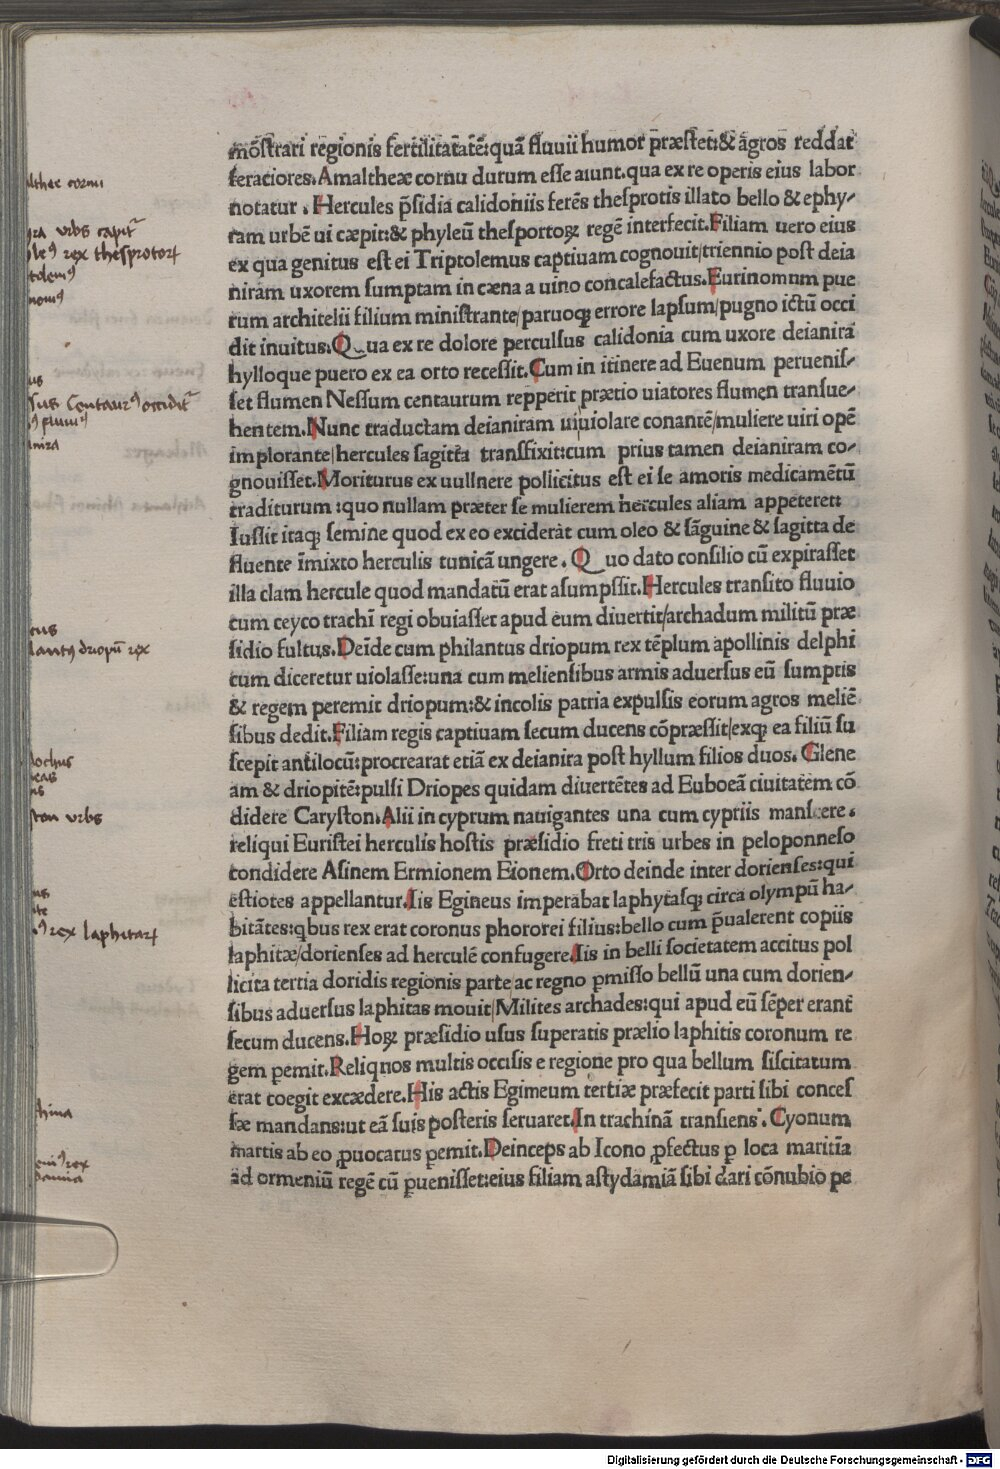 mōstrari regionis fertilitatātē:quā fluuii humor præstet:& agros reddat
feratiores.Amaltheæ cornu durum esse aiunt.qua ex re operis eius labor
notatur . Hercules p̄sidia calidoniis ferēs thesprotis illato bello & ephy-
ram urbē ui cæpit:& phyleū thesportoꝝ regē interfecit.Filiam uero eius
ex qua genitus est ei Triptolemus captiuam cognouit/triennio post deia
niram uxorem sumptam in cæna a uino concalefactus.Eurinomum pue
rum architelii filium ministrante/paruoqꝫ errore lapsum/pugno ictū occi
dit inuitus.Qua ex re dolore perculsus calidonia cum uxore deianira
hylloque puero ex ea orto recessit.Cum in itinere ad Euenum perueniss-
set flumen Nessum centaurum repperit prætio uiatores flumen transue-
hentem.Nunc traductam deianiram uiuiolare conantē/muliere uiri opē
implorante/hercules sagitta transfixit:cum prius tamen deianiram co-
gnouisset.Moriturus ex uullnere pollicitus est ei se amoris medicamētū
traditurum :quo nullam præter se mulierem hercules aliam appeteret:
Iussit itaqꝫ semine quod ex eo exciderat cum oleo & sāguine & sagitta de
fluente īmixto herculis tunicā ungere . Quo dato consilio cū expirasset
illa clam hercule quod mandatū erat asumpssit.Hercules transito fluuio
cum ceyco trachī regi obuiasset apud eum diuertit/archadum militū præ
sidio fultus.Deīde cum philantus driopum rex tēplum apollinis delphi
cum diceretur uiolasse:una cum meliensibus armis aduersus eū sumptis
& regem peremit driopum:& incolis patria expulsis eorum agros meliē
sibus dedit.Filiam regis captiuam secum ducens cōpræssit/exqꝫ ea filiū su
scepit antilocū:procrearat etiā ex deianira post hyllum filios duos. Glene
am & driopitē:pulsi Driopes quidam diuertētes ad Euboeā ciuitatem cō
didere Caryston.Alii in cyprum nauigantes una cum cypriis mansere.
reliqui Euristei herculis hostis præsidio freti tris urbes in peloponneso
condidere Asinem Ermionem Eionem.Orto deinde inter dorienses:qui
estiotes appellantur.Iis Egineus imperabat laphytasqꝫ circa olympū ha-
bitātes:qbus rex erat coronus phororei filius:bello cum p̄ualerent copiis
laphitæ/dorienses ad herculē confugere.Iis in belli societatem accitus pol
licita tertia doridis regionis parte/ac regno ꝑmisso bellū una cum dorien-
sibus aduersus laphitas mouit/Milites archades:qui apud eū sēper erant
secum ducens.Hoꝝ præsidio usus superatis prælio laphitis coronum re
gem ꝑemit.Reliqnos multis occisis e regione pro qua bellum siscitatum
erat coegit excædere.His actis Egimeum tertiæ præfecit parti sibi conces
sæ mandans:ut eā suis posteris seruaret.In trachinā transiens . Cyonum
martis ab eo ꝓuocatus ꝑemit.Deinceps ab Icono ꝓfectus ꝑ loca maritīa
ad ormeniū regē cū ꝑuenisset:eius filiam astydamiā sibi dari cōnubio pe
cornu
urbs capit̄
rex thesprotorꝝ
Centaurꝰ occidit̄
driopū rex
urbs
rex laphitarꝝ
Digitalisierung gefördert durch die Deutsche Forschungsgemeinschaft - DFG